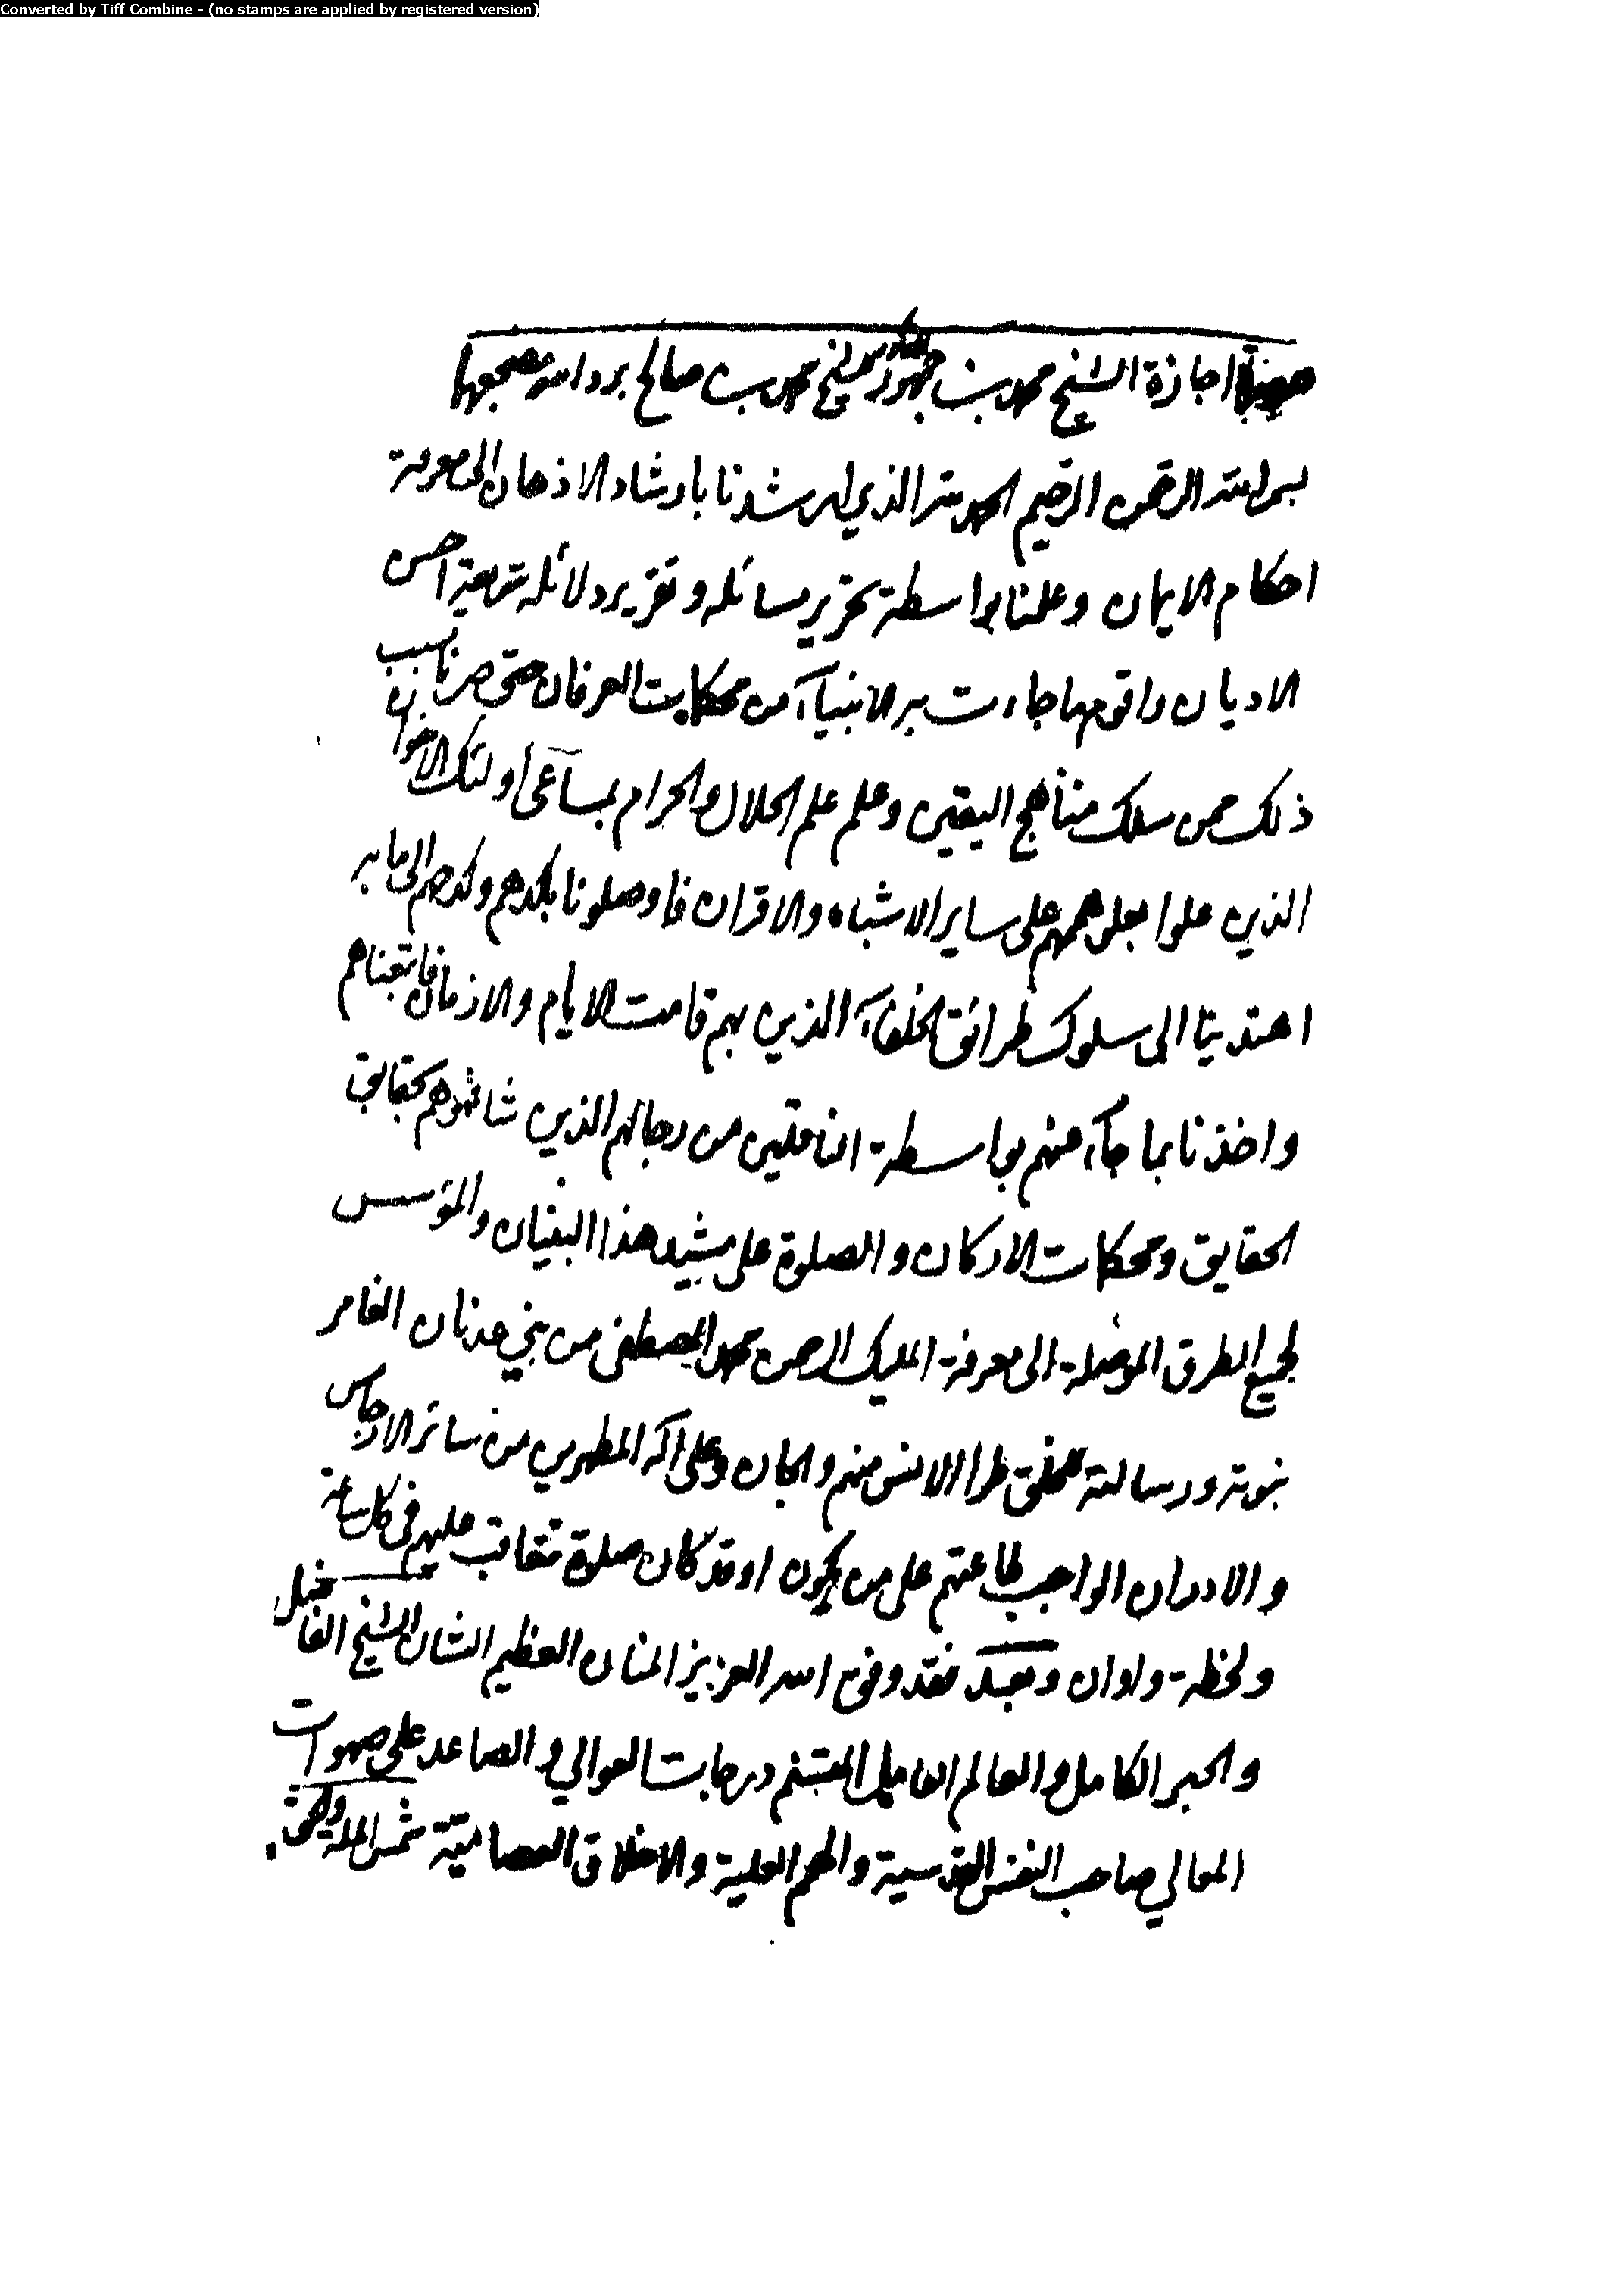 Converted by Tiff Combine - (no stamps are applied by registered version)
اجازة الشيخ محمد بن جمهور للشيخ محمد بن صالح برد الله مضجعهما
بسم الله الرحمن الرحيم الحمد لله الذي ارشدنا بارشاد الاذهان الى معرفة
احكام الايمان وعلمنا بواسطة تحرير مسائله وتقرير دلائله شريعة احسن
الاديان واقومها جاءت به الانبياء من محكمات العرفان حتى صرنا بسبب
ذلك ممن سلك مناهج اليقين وعلم علم الحلال والحرام بمساعي اولئك الاخوان
الذين علوا بعلو هممهم على ساير الاشباه والاقران فاوصلونا بكدهم وكدحهم الى ما به
اهتدينا الى سلوك طرائق الخلفاء الذين بهم قامت الايام والازمان فاتبعناهم
واخذنا بما جاء منهم بواسطة الناقلين من رجالهم الذين شافهوهم بحقايق
الحقايق ومحكمات الاركان والصلوة على مشيد هذا البنيان والمؤسس
لجميع الطرق الموصلة الى معرفة المليك الرحمن محمد المصطفى من بني عدنان الغامر
نبوته ورسالته للخلق طرا الانس منهم والجان وعلى اله المطهرين من سائر الارجاس
والادران الواجب طاعتهم على من يكون او قد كان صلوة تتعاقب عليهم في كل ساعة
ولحظة واوان وبعد فقد وفق الله العزيز المنان العظيم الشان الشيخ الفاضل
والحبر الكامل والعالم العامل المتسنم درجات العوالي والصاعد على صهوات
المعالي صاحب النفس القدسية والهمم العلية والاخلاق العصامية شمس الملة والحق